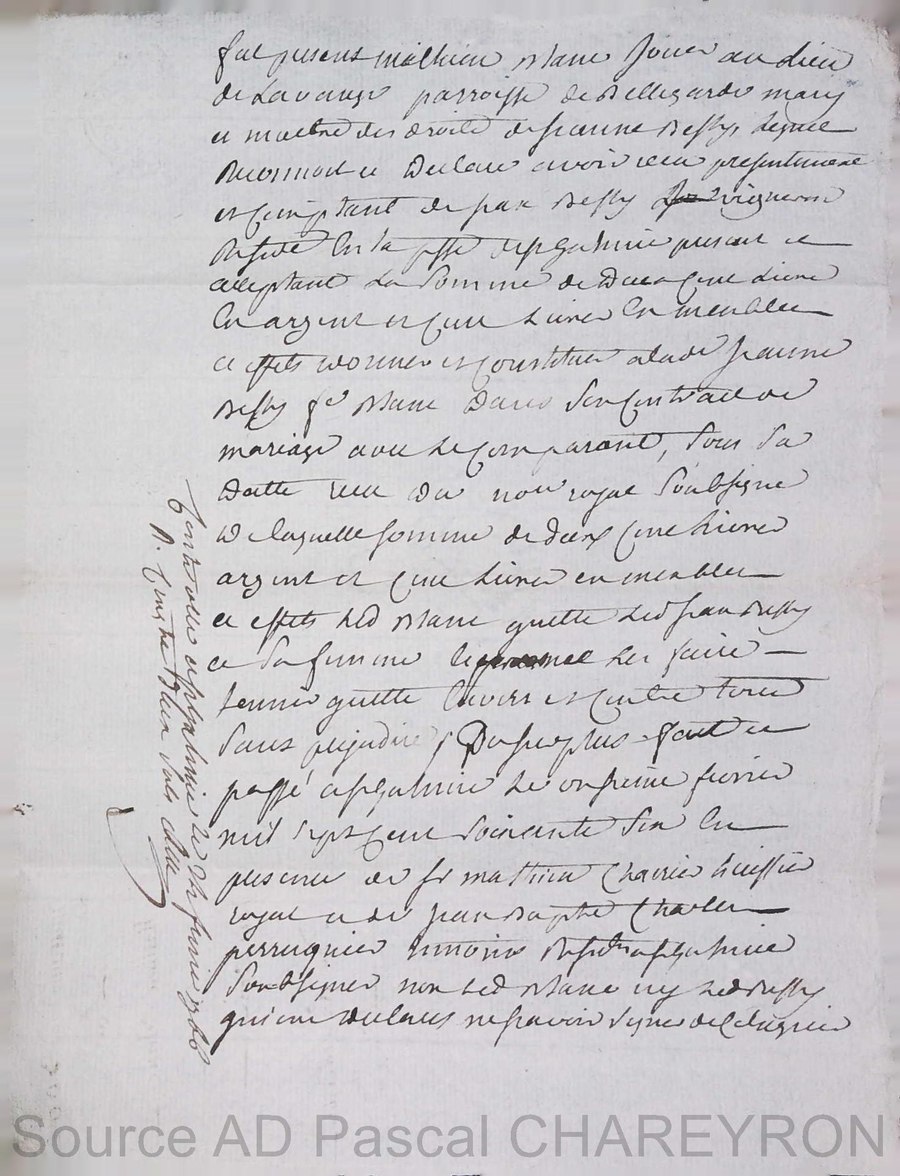 fut present mathieu blanc Joüer au Lieu
de Lavange parroisse de Bellegarde mary
et maitre des droits de jeanne Bessy lequel
Reconnoit et declare avoir receu presentement
et comptant de jean Bessy vigneron
en la psse de st galmier present et
acceptant La somme de deux cent Livres
En argent et cent Livres En meubles
et effets donnes et constitues a lade jeanne
Bessy fe blanc dans son contract de
mariage avec Le comparant, sous sa
datte receu du nore royal soubsigne
de laquelle somme de deux cent Livres
argent et cent Livres en meubles
et effets Led blanc quitte Led jean Bessy
et sa femme Les faire
tenir quitte Envers et contre tous
sans prejudice du surplus fait et
passé a st galmier Le onzieme fevrier
mil sept cent soixante six En
presence de sr mathieu Charrier huissier
royal et de jean baptte Charles
perruquier temoins a st galmier
soubsignes non Led blanc ny Led Bessy
qui ont declares ne sçavoir signer de ce enquis
Controllé a st galmier le fevrier 1766
R.
Source AD Pascal CHAREYRON